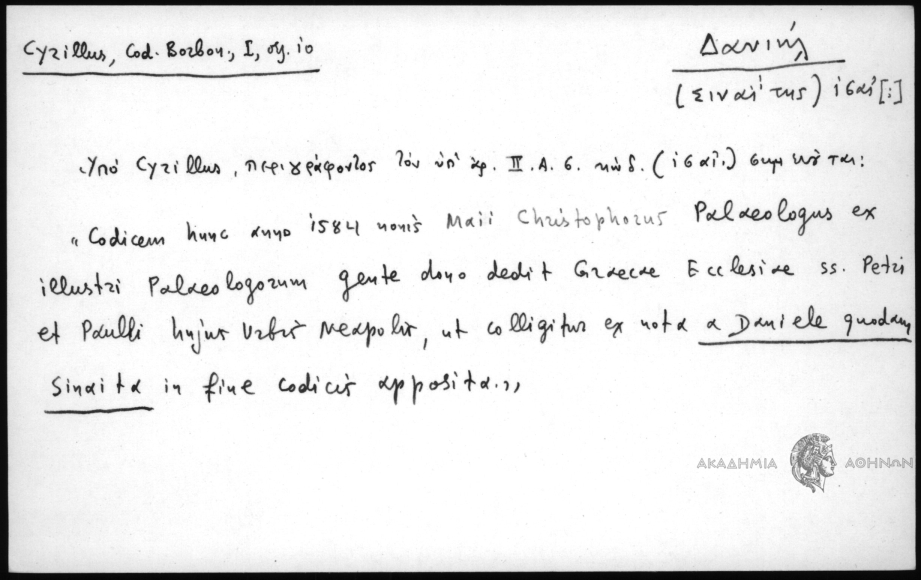 Cyrillus, Cod. Borbon., I, σγ. 10
Δανιήλ
(Σιναΐτης) ις αἰ[:]
Ὑπὸ Cyrillus, περιγράφοντος τὸν ὑπ' ἀρ. II. A. 6. κώδ. (ις αἰ.) σημειοῦται:
"Codicem hunc anno 1584 nonis Maii Christophorus Palaeologus ex
illustri Palaeologorum gente dono dedit Graecae Ecclesiae ss. Petri
et Paulli hujus Urbis Neapolis, ut colligitur ex nota a Daniele quodam
Sinaita in fine codicis apposita."
ΑΚΑΔΗΜΙΑ ΑΘΗΝΩΝ